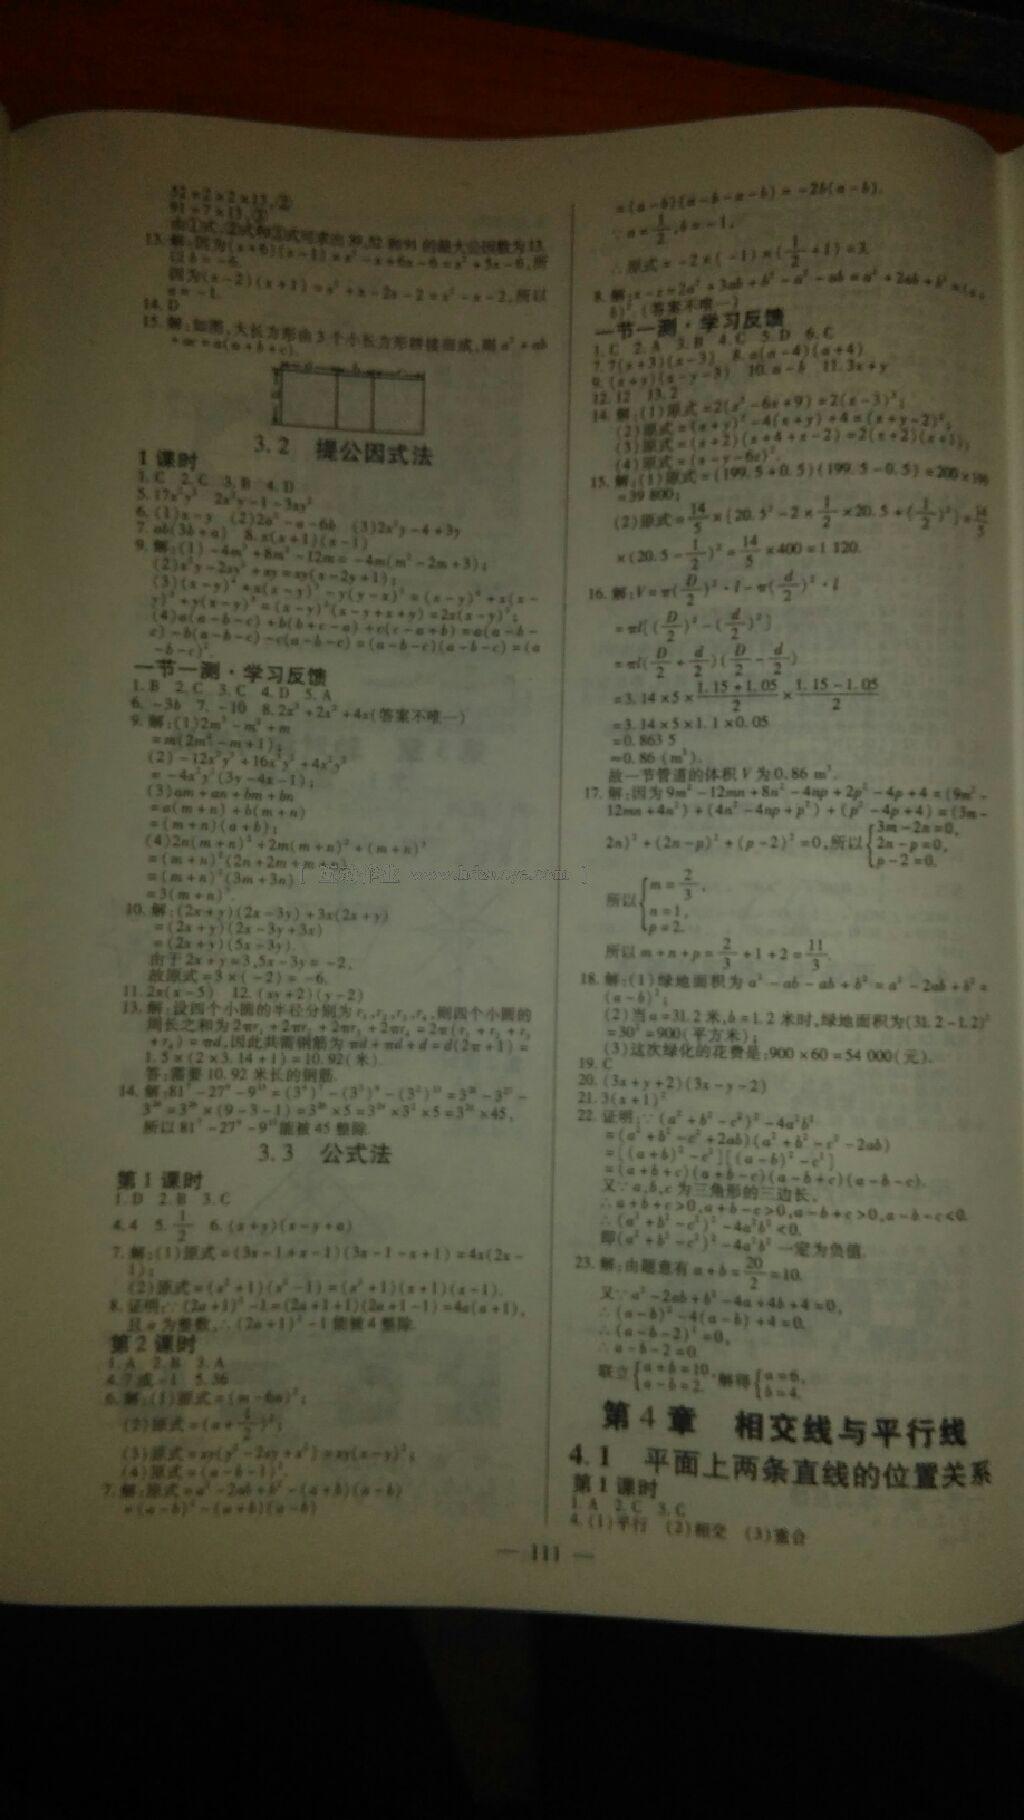 52=2×2×13,②
91=7×13,③
由①式、②式和③式可求出 的最大公因数为13.
13.解:因为(x+6)(x-1)=x²-x+6x-6=x²+5x-6,所
以b=-6.
因为(x-2)(x+1)=x²+x-2x-2=x²-x-2,所以
a=-1.
14.D
15.解:如图,大长方形由3个小长方形拼接而成,则a²+ab
+ac=a(a+b+c).
3.2 提公因式法
1课时
1.C 2.C 3.B 4.D
6.(1)x-y (2)2a²-a-6b (3)2x²y-4+3y
7.ab(3b+a) 8.x(x+1)(x-1)
9.解:(1)-4m³+8m²-12m=-4m(m²-2m+3);
(2)x²y-2xy²+xy=xy(x-2y+1);
(4)a(a-b-c)+b(b+c-a)+c(c-a+b)=a(a-b-
c)-b(a-b-c)-c(a-b-c)=(a-b-c)(a-b-c)=(a
-b-c)².
一节一测·学习反馈
1.B 2.C 3.C 4.D 5.A
6.-3b 7.-10 8.2x³+2x²+4x(答案不唯一)
9.解:(1)2m³-m²+m
=m(2m²-m+1);
=-4x²y²(3y-4x-1);
(3)am+an+bm+bn
=a(m+n)+b(m+n)
=(m+n)(a+b);
(4)2n(m+n)²+2m(m+n)²+(m+n)³
=(m+n)²(2n+2m+m+n)
=(m+n)²(3m+3n)
=3(m+n)³.
10.解:(2x+y)(2x-3y)+3x(2x+y)
=(2x+y)(2x-3y+3x)
=(2x+y)(5x-3y).
由于2x+y=3,5x-3y=-2,
故原式=3×(-2)=-6.
11.2x(x-5) 12.(xy+2)(y-2)
13.解:设四个小圆的半径分别为r₁,r₂,r₃,r₄,则四个小圆的
周长之和为2πr₁+2πr₂+2πr₃+2πr₄=2π(r₁+r₂+r₃
+r₄)=πd,因此共需钢筋为πd+πd+d=d(2π+1)=
1.5×(2×3.14+1)=10.92(米).
答:需要10.92米长的钢筋.
14.解:81⁷-27⁹-9¹³=(3⁴)⁷-(3³)⁹-(3²)¹³=3²⁸-3²⁷-
3²⁶=3²⁶×(9-3-1)=3²⁶×5=3²⁴×3²×5=3²⁴×45,
所以81⁷-27⁹-9¹³能被45整除.
3.3 公式法
第1课时
1.D 2.B 3.C
4.4 5.1/2 6.(x+y)(x-y+a)
7.解:(1)原式=(3x-1+x-1)(3x-1-x+1)=4x(2x-
1);
(2)原式=(x²+1)(x²-1)=(x²+1)(x+1)(x-1).
8.证明:∵(2a+1)²-1=(2a+1+1)(2a+1-1)=4a(a+1),
且a为整数,∴(2a+1)²-1能被4整除.
第2课时
1.A 2.B 3.A
4.7或-1 5.36
6.解:(1)原式=(m-6n)²;
(2)原式=(a+1/2)²;
(3)原式=xy(y²-2xy+x²)=xy(x-y)²;
(4)原式=(a-b-1)².
7.解:原式=a²-2ab+b²-(a+b)(a-b)
=(a-b)²-(a+b)(a-b)
=(a-b)(a-b-a-b)=-2b(a-b).
∵a=1/2,b=-1,
∴原式=-2×(-1)×(1/2+1)=3.
8.解:x-z=2a²+3ab+b²-a²-ab=a²+2ab+b²=(a+
b)².(答案不唯一)
一节一测·学习反馈
1.C 2.A 3.B 4.C 5.D 6.C
7.7(x+3)(x-3) 8.a(a-4)(a+4)
9.(x+y)(x-y-3) 10.a-b 11.3x+y
12.12 13.2
14.解:(1)原式=2(x²-6x+9)=2(x-3)²;
(2)原式=(x+y)²-4(x+y)+4=(x+y-2)²;
(3)原式=(x+2)(x+4+x-2)=2(x+2)(x+1);
(4)原式=(x-y-6z)².
15.解:(1)原式=(199.5+0.5)(199.5-0.5)=200×199
=39 800;
(2)原式=14/5×[20.5²-2×1/2×20.5+(1/2)²]=14/5
×(20.5-1/2)²=14/5×400=1 120.
16.解:V=π(D/2)²·l-π(d/2)²·l
=πl[(D/2)²-(d/2)²]
=πl(D/2+d/2)(D/2-d/2)
=3.14×5×(1.15+1.05)/2×(1.15-1.05)/2
=3.14×5×1.1×0.05
=0.863 5
≈0.86(m³).
故一节管道的体积V为0.86 m³.
17.解:因为9m²-12mn+8n²-4np+2p²-4p+4=(9m²-
12mn+4n²)+(4n²-4np+p²)+(p²-4p+4)=(3m-
2n)²+(2n-p)²+(p-2)²=0,所以{3m-2n=0, 2n-p=0, p-2=0.
所以{m=2/3, n=1, p=2.
所以m+n+p=2/3+1+2=11/3.
18.解:(1)绿地面积为a²-ab-ab+b²=a²-2ab+b²=
(a-b)²;
(2)当a=31.2米,b=1.2米时,绿地面积为(31.2-1.2)²
=30²=900(平方米);
(3)这次绿化的花费是:900×60=54 000(元).
19.C
20.(3x+y+2)(3x-y-2)
21.3(x+1)²
22.证明:∵(a²+b²-c²)²-4a²b²
=(a²+b²-c²+2ab)(a²+b²-c²-2ab)
=[(a+b)²-c²][(a-b)²-c²]
=(a+b+c)(a+b-c)(a-b+c)(a-b-c).
又∵a,b,c为三角形的三边长,
∴a+b+c>0,a+b-c>0,a-b+c>0,a-b-c<0.
∴(a²+b²-c²)²-4a²b²<0.
即(a²+b²-c²)²-4a²b²一定为负值.
23.解:由题意有a+b=20/2=10.
又∵a²-2ab+b²-4a+4b+4=0,
∴(a-b)²-4(a-b)+4=0.
∴(a-b-2)²=0,
∴a-b-2=0.
联立{a+b=10, a-b=2. 解得{a=6, b=4.
第4章 相交线与平行线
4.1 平面上两条直线的位置关系
第1课时
1.A 2.C 3.C
4.(1)平行 (2)相交 (3)重合
— 111 —